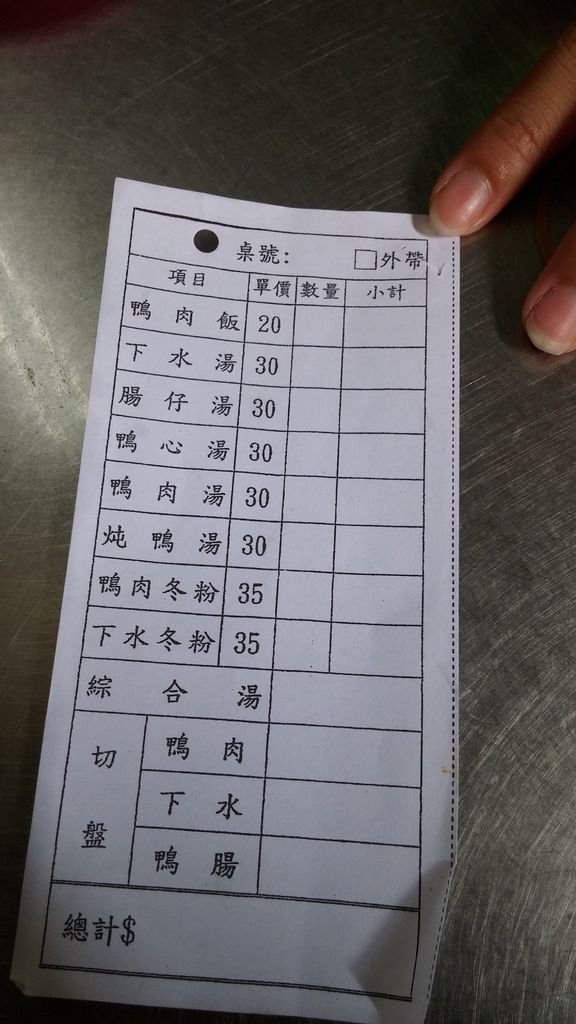 桌號: □外帶
項目 單價 數量 小計
鴨肉飯 20
下水湯 30
腸仔湯 30
鴨心湯 30
鴨肉湯 30
炖鴨湯 30
鴨肉冬粉 35
下水冬粉 35
綜合湯
切盤
鴨肉
下水
鴨腸
總計$